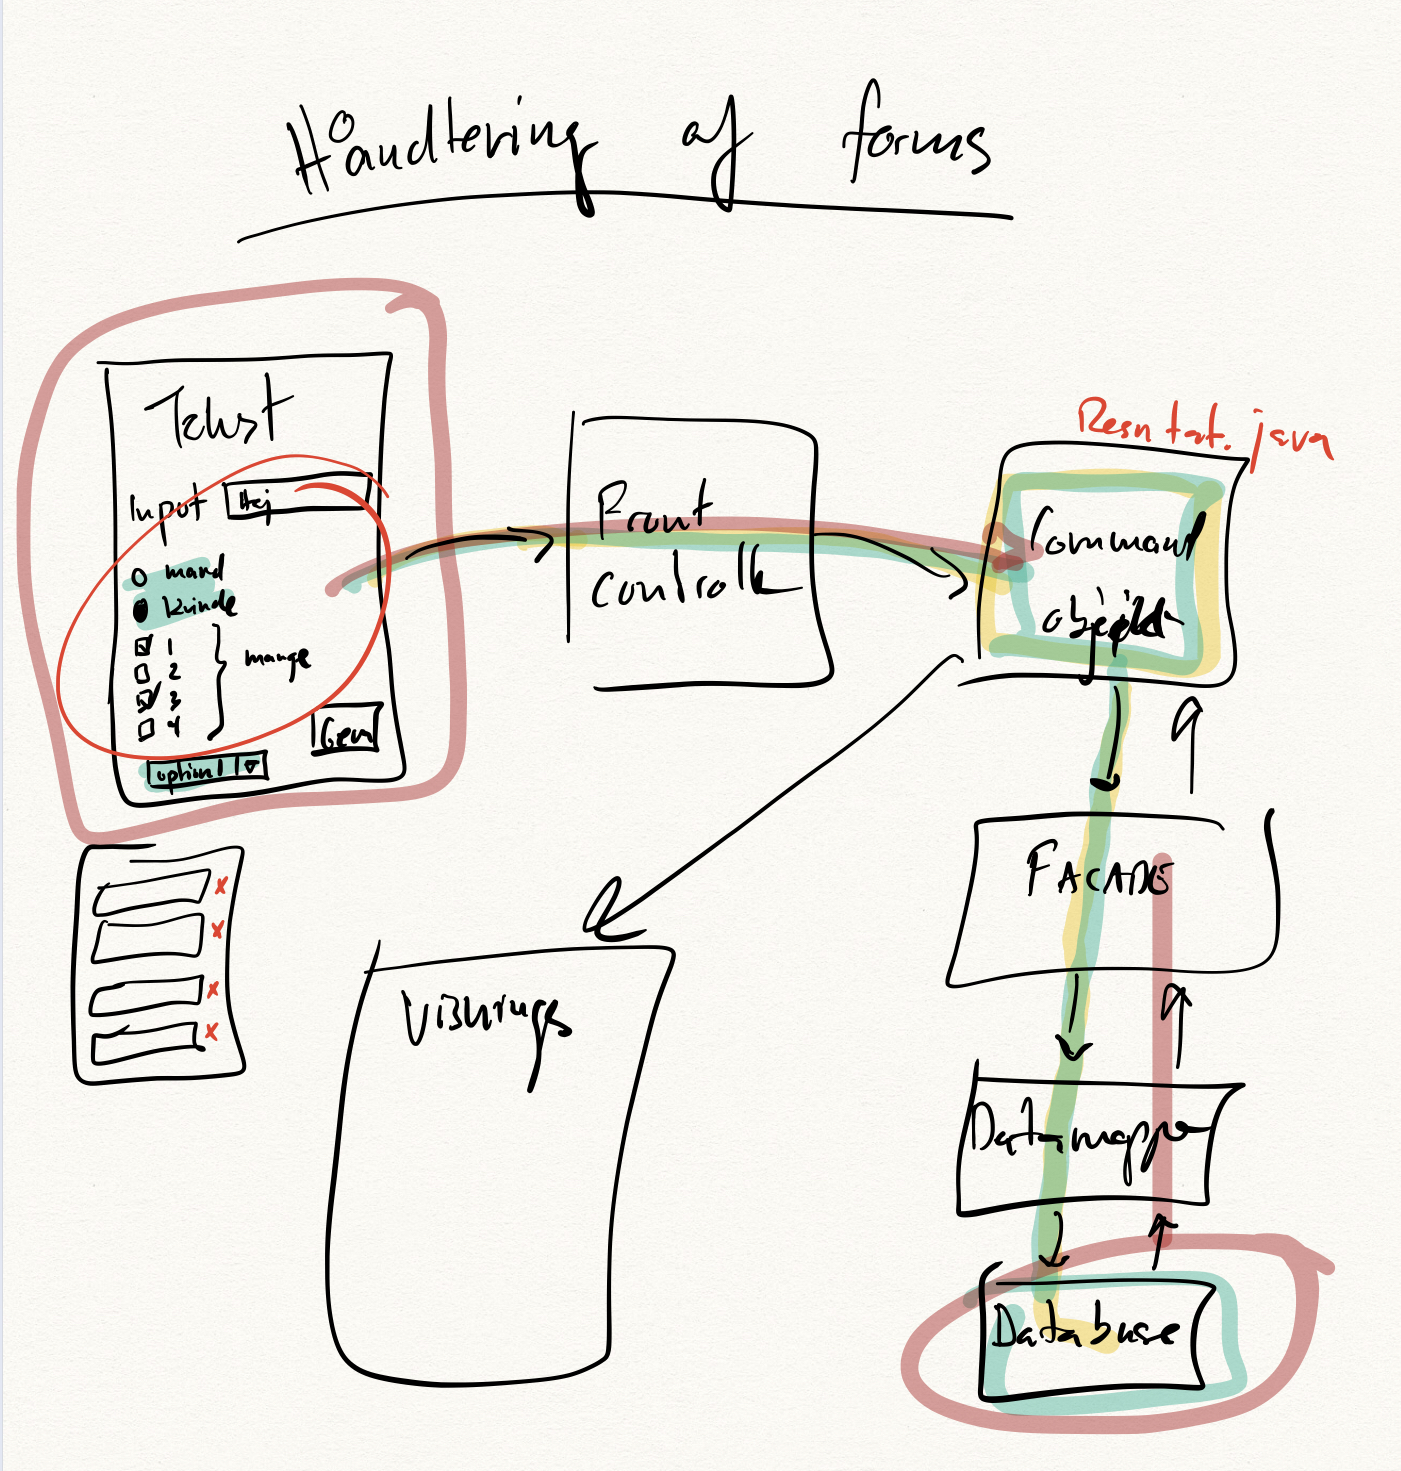 Håndtering af forms
Tekst
Input Hej
mand
kvinde
1
2
3
4
mange
option1
Gem
Front
controlle
Resultat.java
Command
objekt
FACADE
Datamapper
Database
Visnings